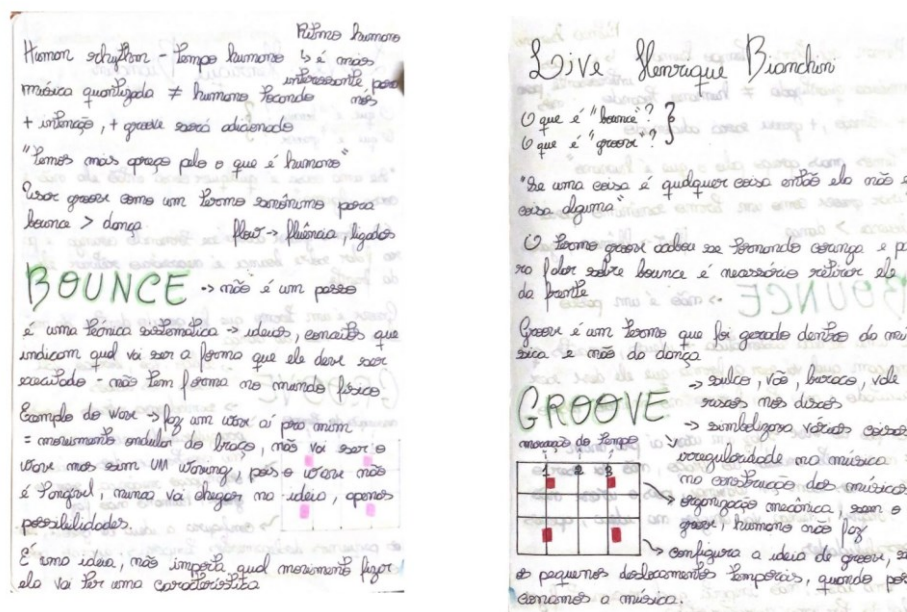 Ritmo humano
Human rhythm - tempo humano ↳ é mais
interessante para
música quantizada ≠ humano tocando nós
+ intenção, + groove será adicionado
"Temos mais apreço pelo o que é humano"
Usar groove como um termo sinônimo para
bounce > dança flow → fluência, ligados
BOUNCE → não é um passo
é uma técnica sistemática → ideias, conceitos que
indicam qual vai ser a forma que ele deve ser
executado - não tem forma no mundo físico
Exemplo do wave → faz um wave aí pra mim
= movimento ondular do braço, não vai ser o
wave mas sim UM waving, pois o wave não
é tangível, nunca vai chegar na ideia, apenas
possibilidades.
É uma ideia, não importa qual movimento fizer
ela vai ter uma característica
Live Henrique Bianchini
O que é "bounce"?
O que é "groove"? }
"Se uma coisa é qualquer coisa então ela não é
coisa alguma"
O termo groove acabou se tornando coringa e pa
ra falar sobre bounce é necessário retirar ele
da frente
Groove é um termo que foi gerado dentro da mú
sica e não da dança
→ sulco, vão, buraco, vale
GROOVE nos discos
→ simbolizava várias coisas
marcação do tempo → irregularidade na música
1 2 3 na construção das músicas
→ organização mecânica, sem o
groove, humano não faz
→ configura a ideia de groove,
os pequenos deslocamentos temporais, quando
a música.